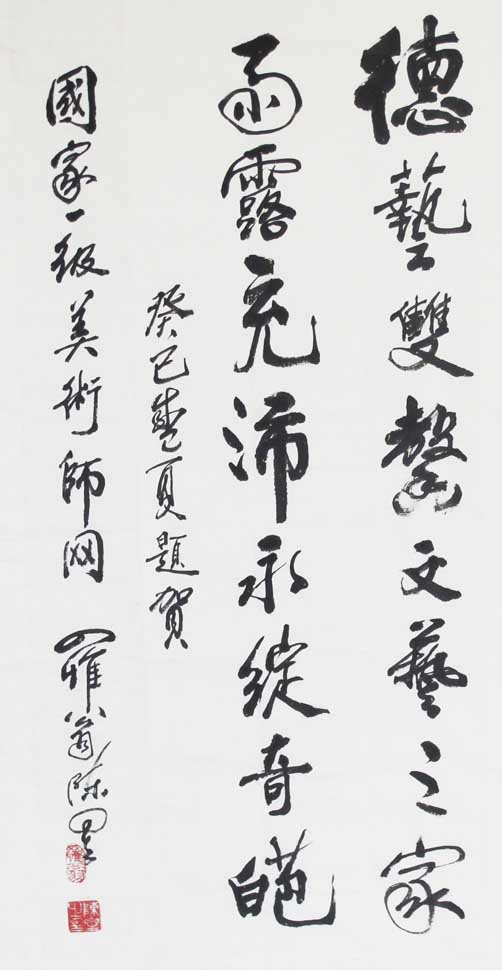 德藝雙馨文藝之家
雨露充沛永綻奇葩
癸巳盛夏題賀
國家一级美術師网 羅翁陈